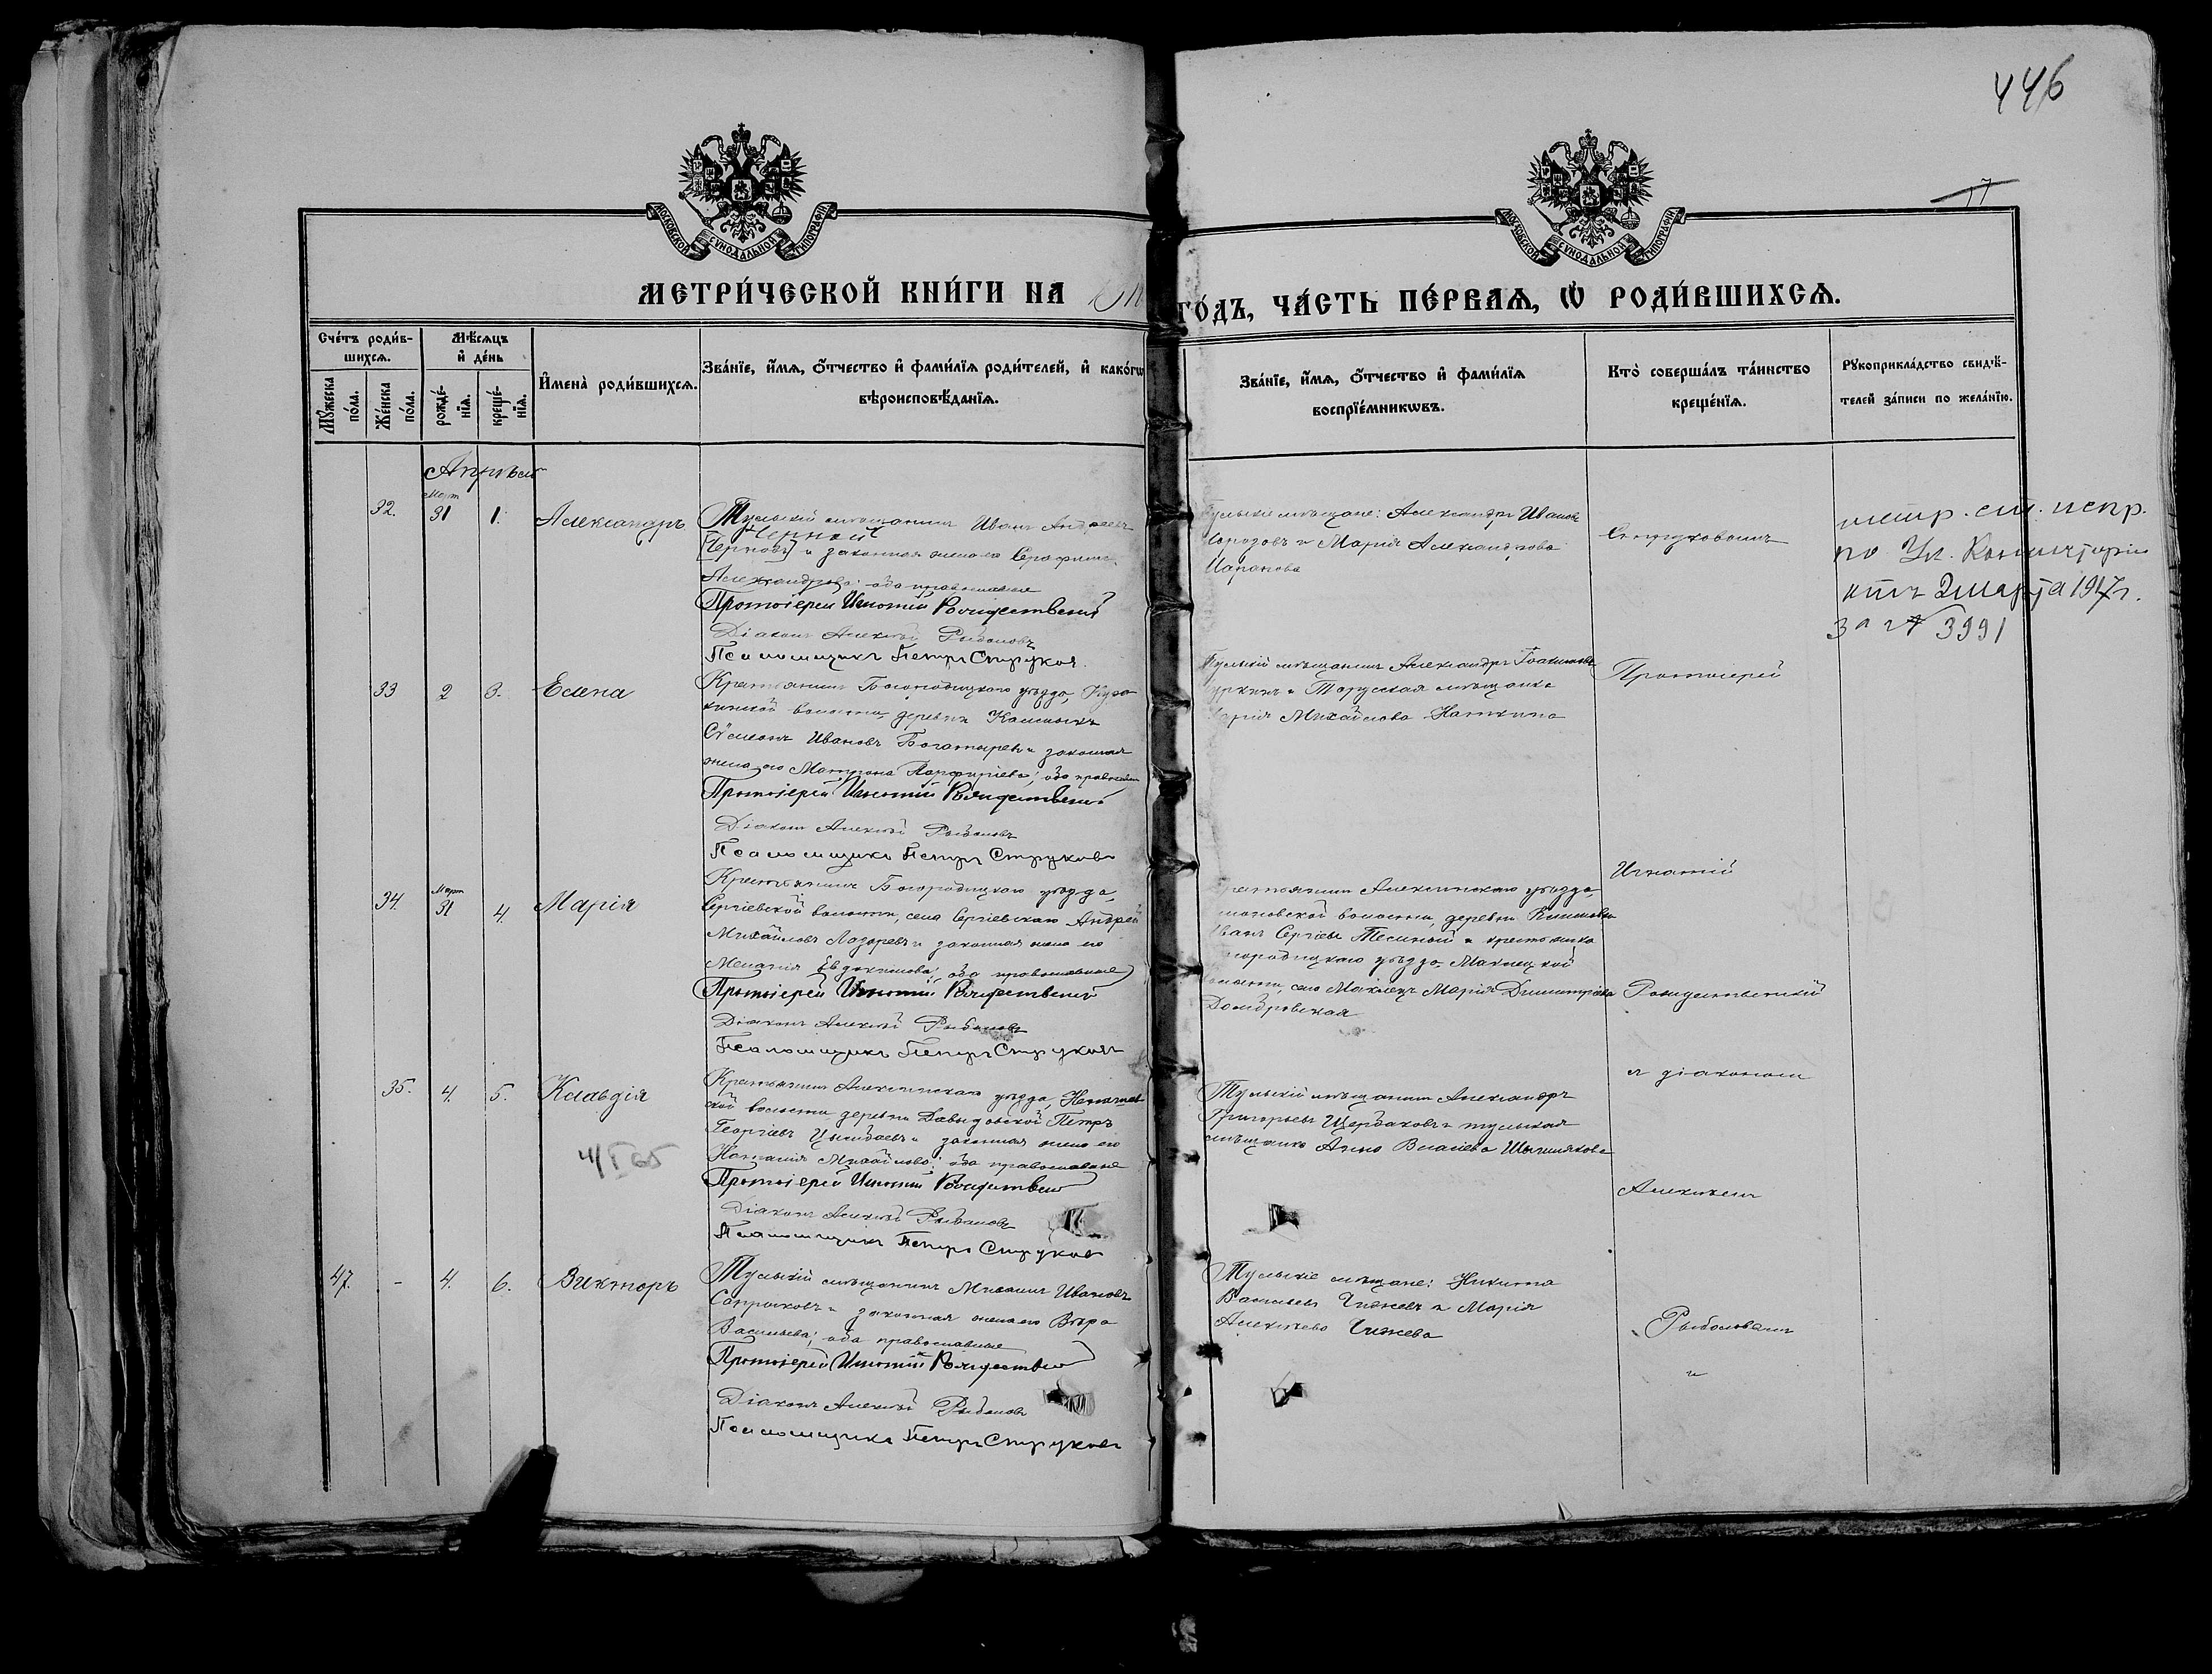 446
17
МОСКОВСКОЙ СѴНОДАЛЬНОЙ ТИПОГРАФІИ
МОСКОВСКОЙ СѴНОДАЛЬНОЙ ТИПОГРАФІИ
МЕТРИ́ЧЕСКОЙ КНИ́ГИ НА
ГО́ДЪ, ЧА́СТЬ ПЕ́РВАѦ, Ѡ РОДИ́ВШИХСѦ.
Сче́тъ роди́в-
шихсѧ.
Мꙋ́жеска
по́ла.
Же́нска
по́ла.
Мѣ́сѧцъ
и҆ де́нь
рожде́-
нїѧ.
креще́-
нїѧ.
И҆мена̀ роди́вшихсѧ.
Зва́нїе, и҆́мѧ, ѻ҆́тчество и҆ фами́лїѧ роди́телей, и҆ како́гѡ
вѣроисповѣ́данїѧ.
Зва́нїе, и҆́мѧ, ѻ҆́тчество и҆ фами́лїѧ
воспрїе́мникѡвъ.
Кто̀ соверша́лъ та́инство
креще́нїѧ.
Рꙋкоприкла́дство свидѣ́-
телей за́писи по жела́нїю.
Апрѣль
32.
Март
31
1.
Александръ
Тульскій мѣщанинъ Иванъ Андреевъ
Черный
[Черновъ] и законная жена его Серафима
Александрова; оба православные
Протоіерей Игнатій Рождественскій
Діаконъ Алексѣй Рыболовъ
Псаломщикъ Петръ Струковъ
Тульскіе мѣщане: Александръ Ивановъ
Морозовъ и Марія Александрова
метр. ст. испр.
по Ук. Консисторіи
отъ 2 марта 1917 г.
за № 3991
33
2
3.
Елена
Крестьянинъ Богородицкаго уѣзда,
волости, деревни
Сѷмеонъ Ивановъ Богатыревъ и законная
жена его Матрона Порфиріева; оба православн
Протоіерей Игнатій Рождественскій
Діаконъ Алексѣй Рыболовъ
Псаломщикъ Петръ Струковъ
Тульскій мѣщанинъ Александръ Іоакимовъ
и Тарусская мѣщанка
Марія Михайлова
Протоіерей
34.
Март
31
4.
Марія
Крестьянинъ Богородицкаго уѣзда,
Сергіевской волости, села Сергіевскаго Андрей
Михайловъ Лазаревъ и законная жена его
Меланія Евдокимова; оба православные
Протоіерей Игнатій Рождественскій
Діаконъ Алексѣй Рыболовъ
Псаломщикъ Петръ Струковъ
Игнатій
Крестьянинъ Алексинскаго уѣзда,
волости, деревни
Иванъ Сергіевъ и крестьянка
Богородицкаго уѣзда,
волости, села Марія Димитріева
Домбровская
Рождественскій
35.
4.
5.
Клавдія
4/I 65
Крестьянинъ Алексинскаго уѣзда,
волости деревни Давыдовской Петръ
Георгіевъ и законная жена его
Наталія Михайлова; оба православные
Протоіерей Игнатій Рождественскій
Діаконъ Алексѣй Рыболовъ
Псаломщикъ Петръ Струковъ
съ діакономъ
Тульскій мѣщанинъ Александръ
Григорьевъ Щербаковъ и тульская
мѣщанка Анна
Алексѣемъ
47.
-
4.
6.
Викторъ
Тульскій мѣщанинъ Михаилъ Ивановъ
Сапрыковъ и законная жена его Вѣра
Васильева; оба православные
Протоіерей Игнатій Рождественскій
Діаконъ Алексѣй Рыболовъ
Псаломщикъ Петръ Струковъ
Тульскіе мѣщане: Никита
Васильевъ Чижевъ и Марія
Алексѣева Чижева
Рыболовымъ
и